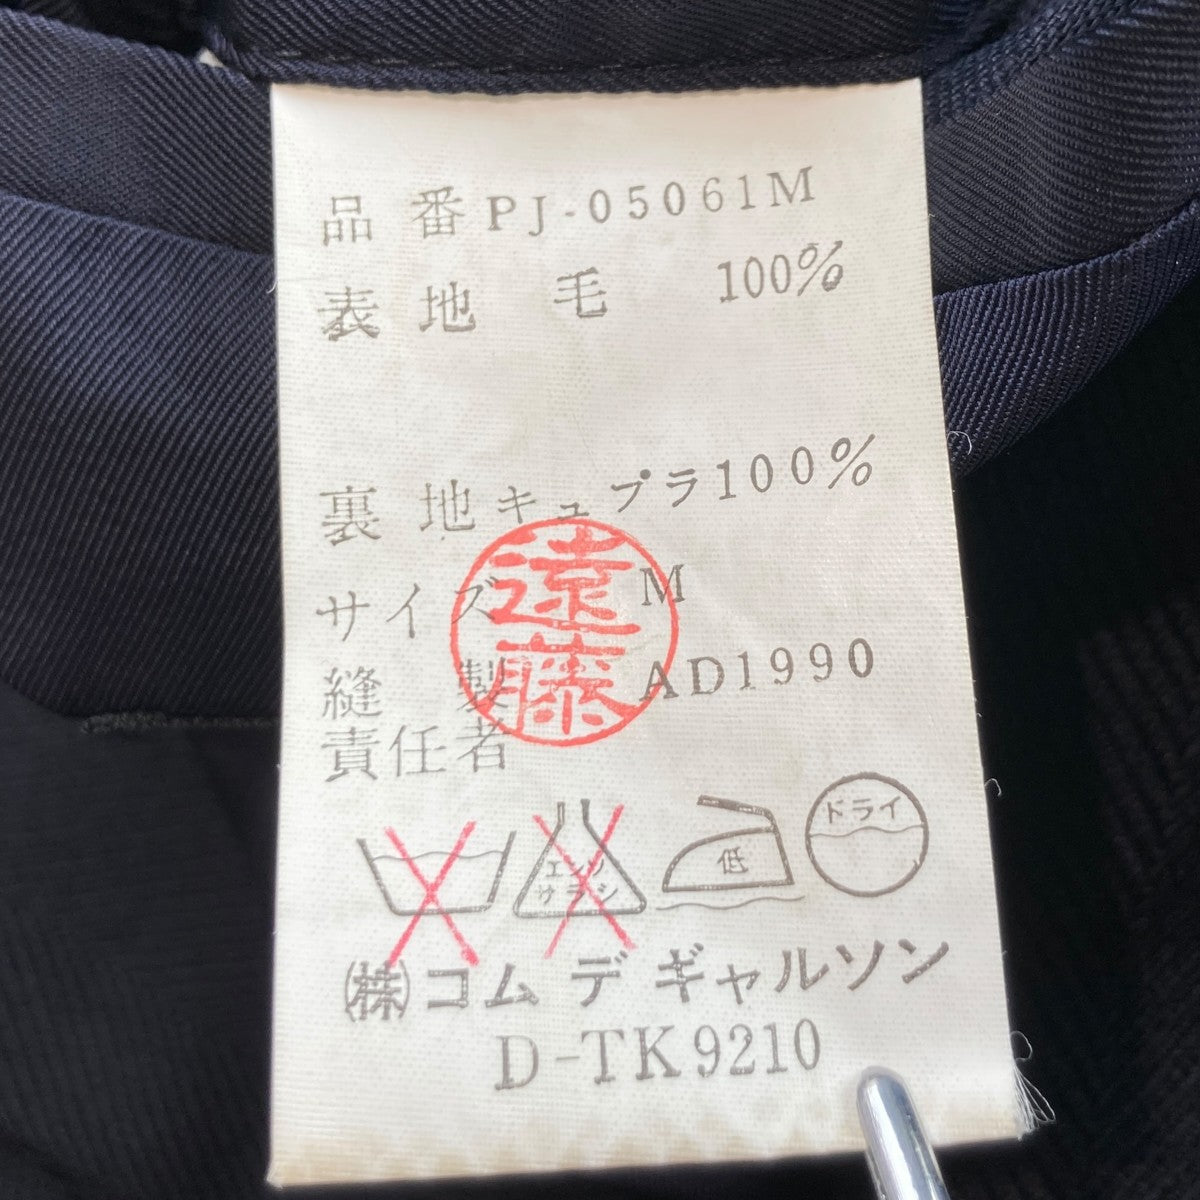 品番 PJ-05061M
表地 毛 100%
裏地 キュプラ100%
サイズ M
遠藤
縫製 AD1990
責任者
エンソ
サラシ
低
ドライ
㈱コム デ ギャルソン
D-TK9210